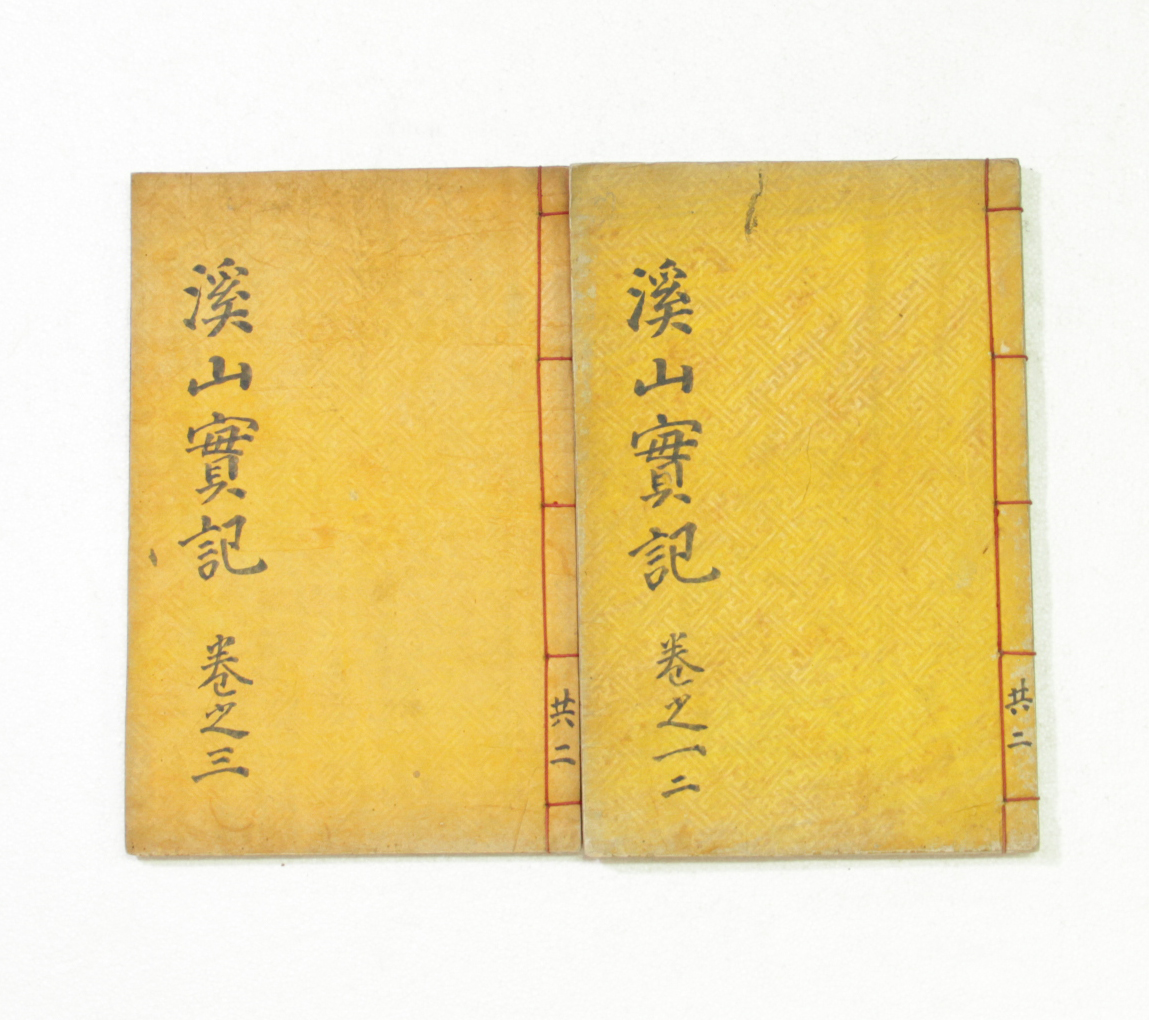 溪山實記 卷之一二
共二
溪山實記 卷之三
共二